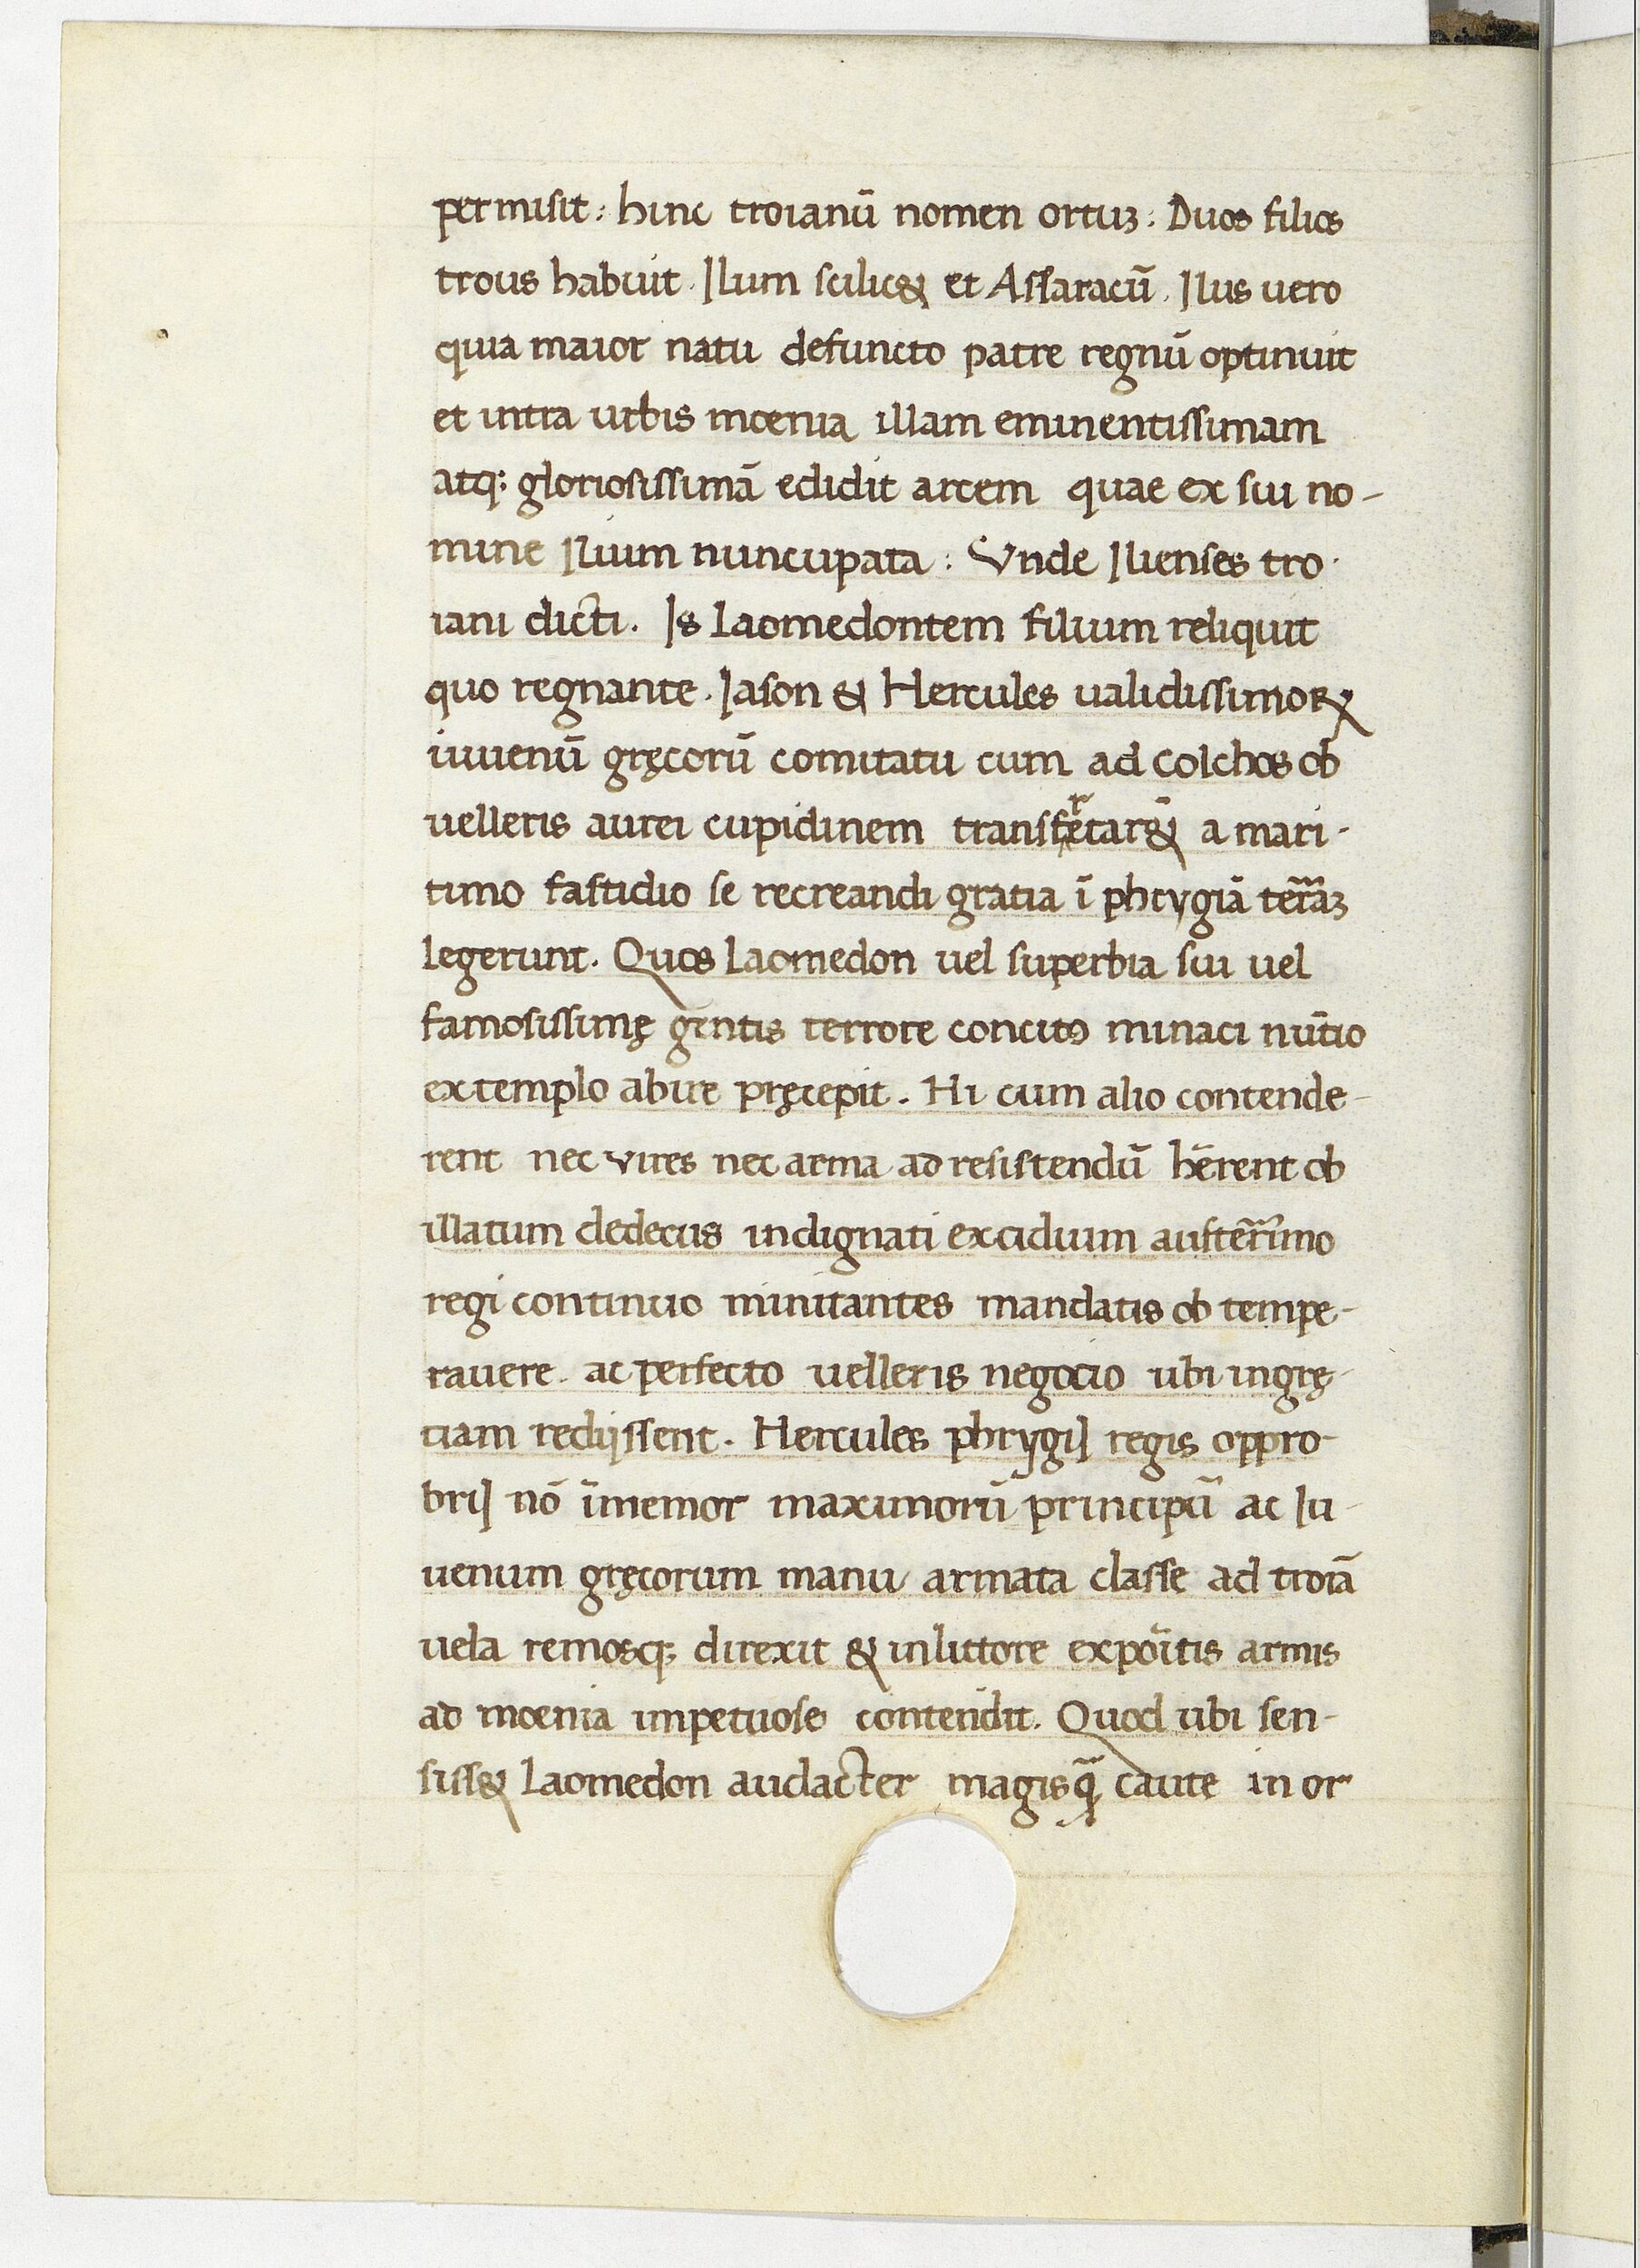 permisit: hinc troianū nomen ortuꝫ: Duos filios
trous habuit. Ilum scilic& et Assaracū. Ilus uero
quia maior natu defuncto patre regnū optinuit
et intra urbis moenia illam eminentissimam
atq: gloriosissimā edidit arcem quae ex sui no-
mine Ilium nuncupata: Vnde Ilienses tro-
iani dicti. Is Laomedontem filium reliquit
quo regnante. Iason & Hercules ualidissimoꝝ
iuuenū gręcorū comitatu cum ad colchos ob
uelleris aurei cupidinem transfretar& a mari-
timo fastidio se recreandi gratia ī phrygiā terraꝫ
legerunt. Quos Laomedon uel superbia sui uel
famosissimę gentis terrore concitꝰ minaci nūtio
extemplo abire pręcepit. Hi cum alio contende-
rent nec vires nec arma ad resistendū hērent ob
illatum dedecus indignati excidium austerrimo
regi continuo minitantes mandatis ob tempe-
rauere. ac perfecto uelleris negocio ubi ingrę-
ciam redijssent. Hercules phrygij regis oppro-
brij nō īmemor maximorū principū ac Iu-
uenum gręcorum manu armata classe ad troiā
uela remosq; direxit & inlittore expoītis armis
ad moenia impetuose contendit. Quod ubi sen-
siss& Laomedon audacter magisq̄ caute in or